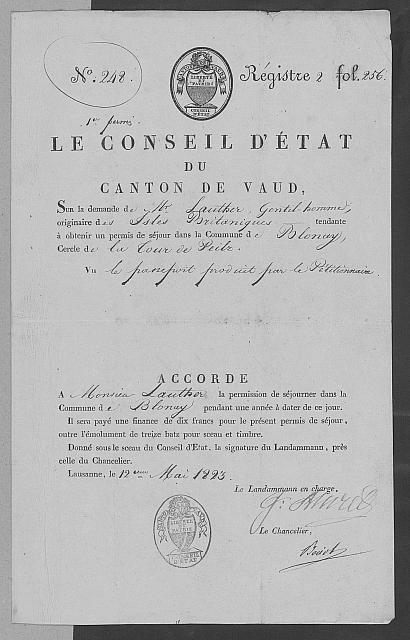 N.º 248.
LIBERTÉ
ET
PATRIE
CONSEIL
D'ÉTAT
Régistre 2 fol. 256.
1er permis
LE CONSEIL D'ÉTAT
DU
CANTON DE VAUD,
Sur la demande de Mr Lauther, Gentilhomme,
originaire des Isles Britaniques tendante
à obtenir un permis de séjour dans la Commune de Blonay,
Cercle de la Tour de Peilz.
Vu le passeport produit par le Pétitionnaire
ACCORDE
A Monsieur Lauther, la permission de séjourner dans la
Commune de Blonay pendant une année à dater de ce jour.
Il sera payé une finance de dix francs pour le présent permis de séjour,
outre l'émolument de treize batz pour sceau et timbre.
Donné sous le sceau du Conseil d'Etat, la signature du Landammann, près
celle du Chancelier.
Lausanne, le 12 Mai 1823.
Le Landammann en charge,
LIBERTÉ
ET
PATRIE
CONSEIL
D'ÉTAT
Le Chancelier,
Boisot